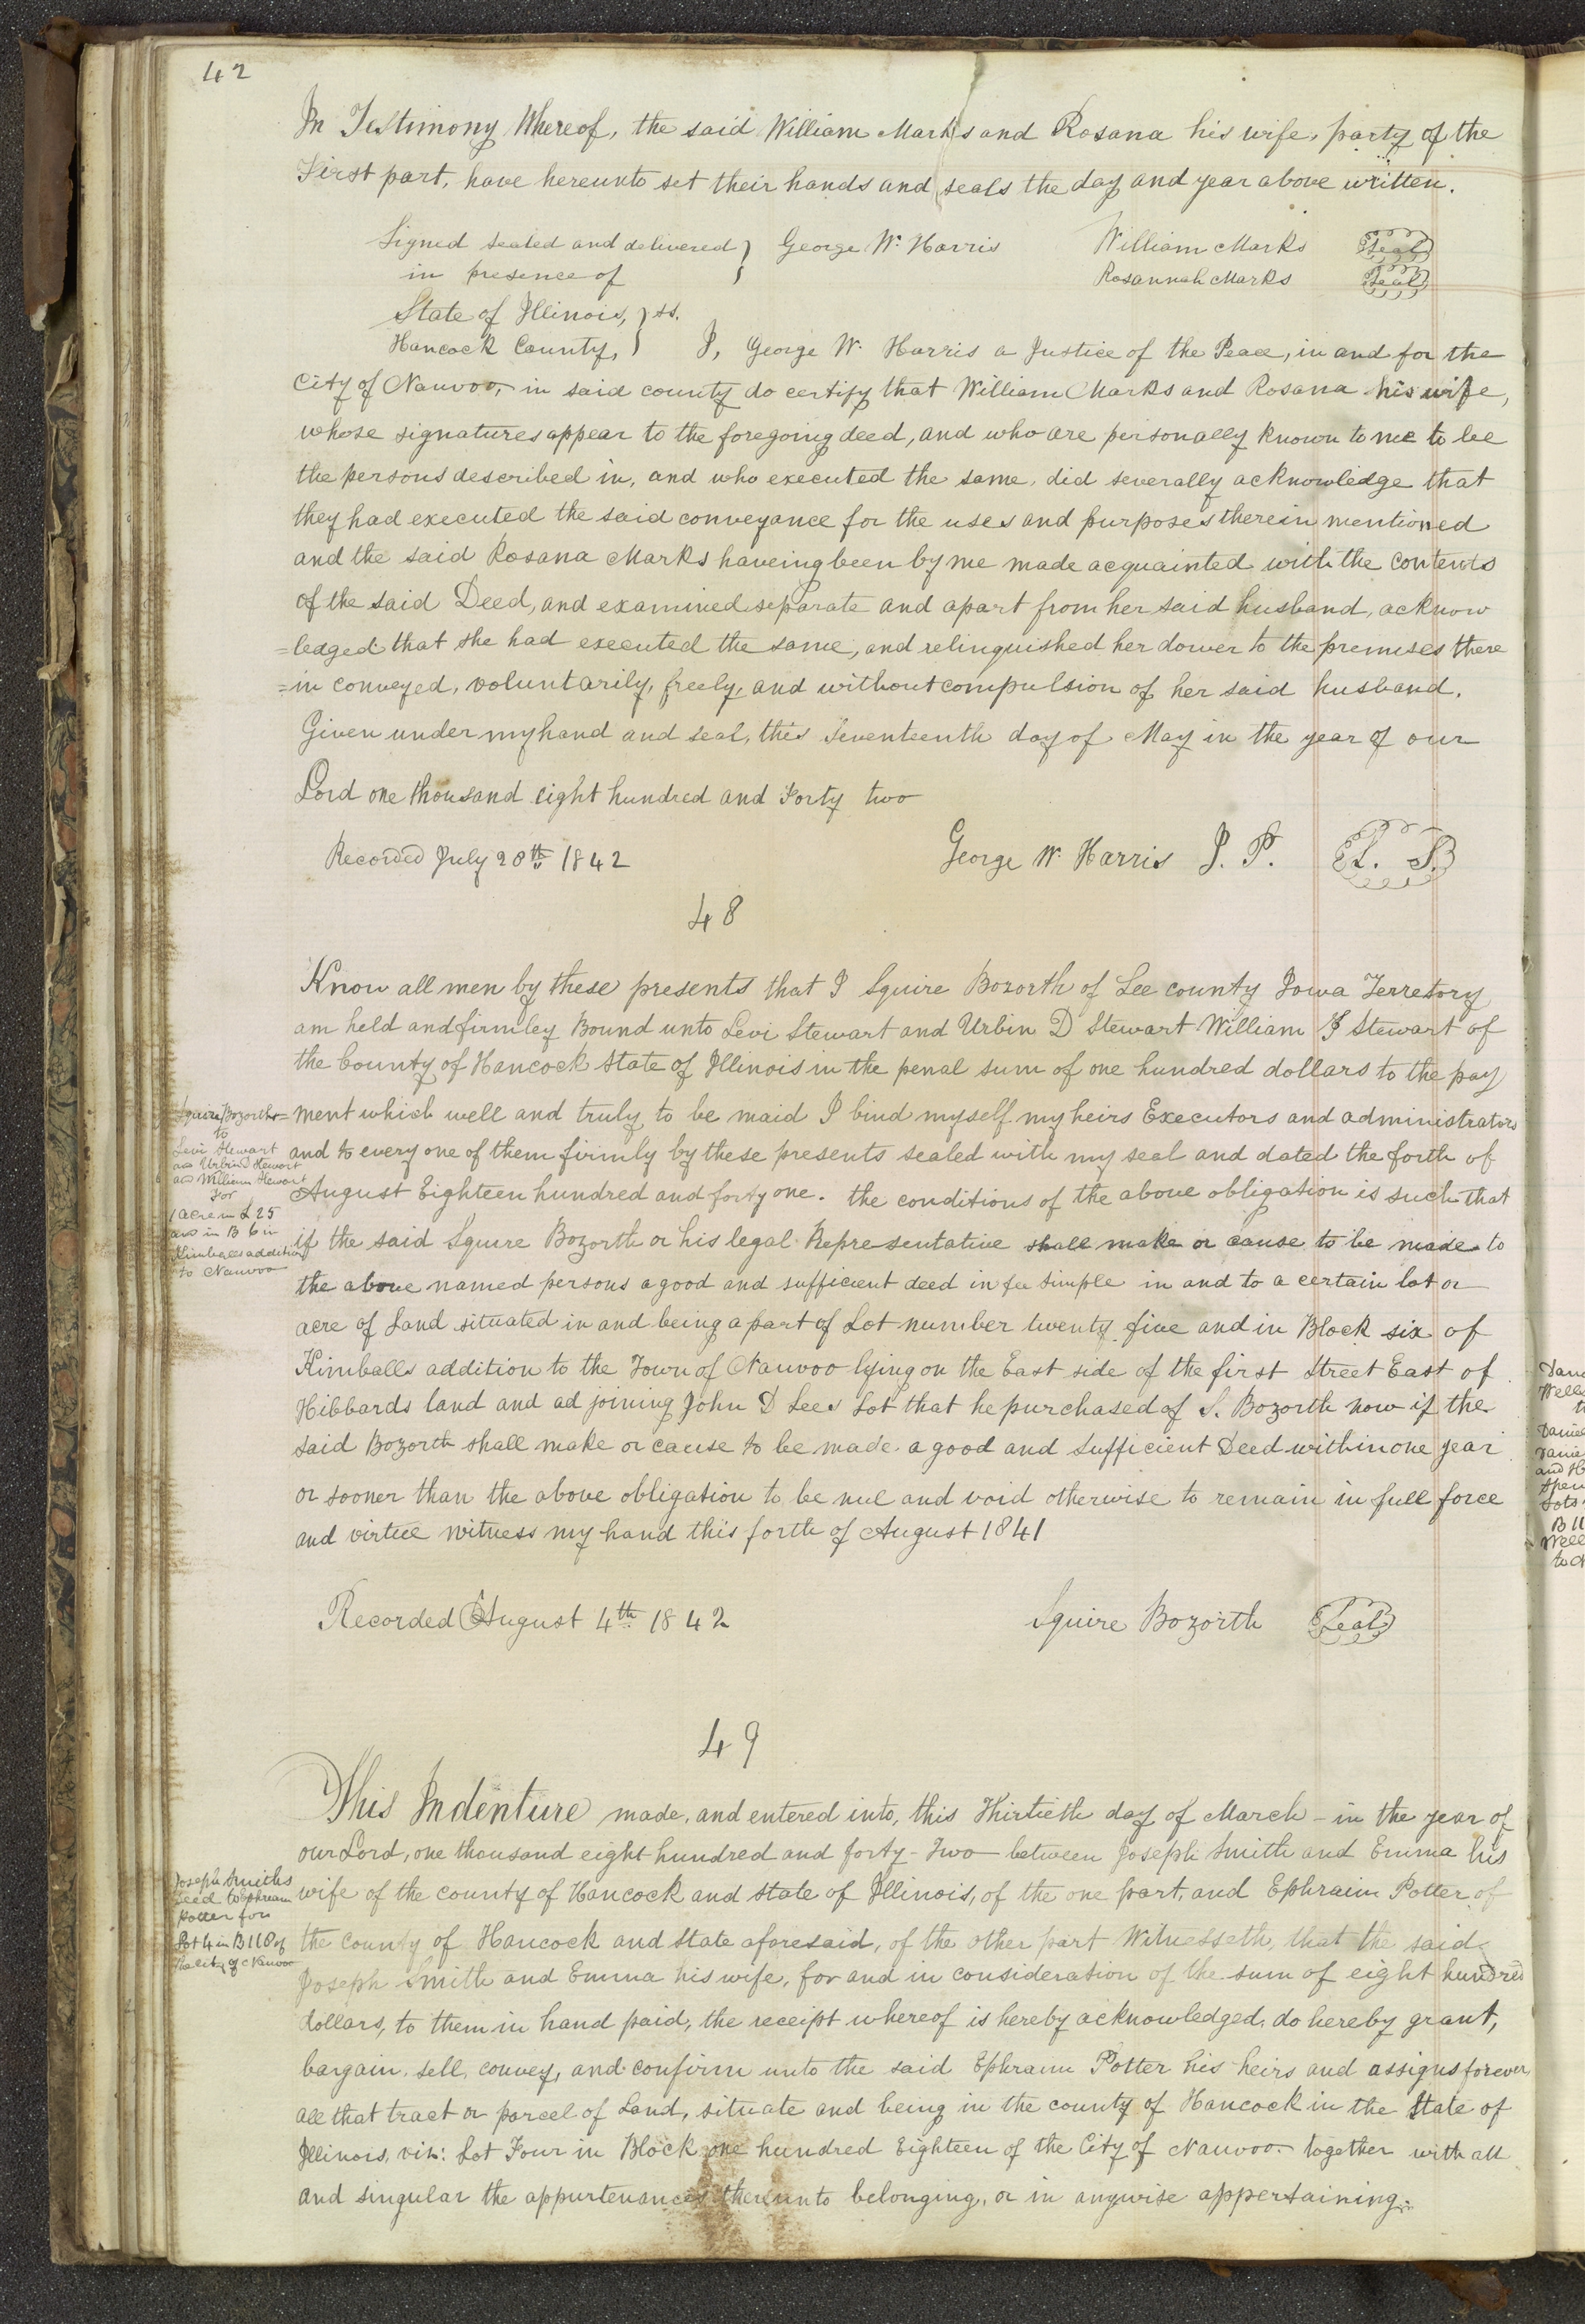 42
In Testimony Whereof, the said William Marks and Rosana his wife, party of the
First part, have hereunto set their hands and seals the day and year above written.
Signed sealed and delivered } George W. Harris William Marks Seal
in presence of } Rosannah Marks Seal
State of Illinois, } ss.
Hancock County, } I, George W. Harris a Justice of the Peace, in and for the
City of Nauvoo, in said county do certify that William Marks and Rosana his wife,
whose signatures appear to the foregoing deed, and who are personally known to me to be
the persons described in, and who executed the same, did severally acknowledge that
they had executed the said conveyance for the uses and purposes therein mentioned
and the said Rosana Marks haveing been by me made acquainted with the contents
of the said Deed, and examined separate and apart from her said husband, acknow
=ledged that she had executed the same, and relinquished her dower to the premises there
=in conveyed, voluntarily, freely, and without compulsion of her said husband.
Given under my hand and seal, this Seventeenth day of May in the year of our
Lord one thousand eight hundred and Forty two
Recorded July 20th 1842 George W. Harris J. P. L. S.
48
Know all men by these presents that I Squire Bozorth of Lee county Iowa Terretory
am held and firmley Bound unto Levi Stewart and Urbin D Stewart William J Stewart of
the County of Hancock State of Illinois in the penal sum of one hundred dollars to the pay
=ment which well and truly to be maid I bind myself my heirs Executors and administrators
and to every one of them firmly by these presents sealed with my seal and dated the forth of
August Eighteen hundred and forty one. the conditions of the above obligation is such that
if the said Squire Bozorth or his legal Representative shall make or cause to be made to
the above named persons a good and sufficient deed in fee simple in and to a certain lot or
acre of Land situated in and being a part of Lot number twenty five and in Block six of
Kimballs addition to the Town of Nauvoo lying on the East side of the first Street East of
Hibbards land and ad joining John D Lees Lot that he purchased of S. Bozorth now if the
said Bozorth shall make or cause to be made a good and sufficient Deed within one year
or sooner than the above obligation to be nul and void otherwise to remain in full force
and virtue witness my hand this forth of August 1841
Squire Bozorth
to
Levi Stewart
and Urbin D Stewart
and William Stewart
For
1 acre in L 25
and in B 6 in
Kimballs addition
to Nauvoo
Recorded August 4th 1842 Squire Bozorth Seal
49
This Indenture made, and entered into, this Thirtieth day of March - in the year of
our Lord, one thousand eight hundred and forty-Two between Joseph Smith and Emma his
wife of the county of Hancock and State of Illinois, of the one part, and Ephraim Potter of
the county of Hancock and State aforesaid, of the other part Witnesseth, that the said
Joseph Smith and Emma his wife, for and in consideration of the sum of eight hundred
dollars, to them in hand paid, the receipt whereof is hereby acknowledged, do hereby grant,
bargain, sell, convey, and confirm unto the said Ephraim Potter his heirs and assigns forever
all that tract or parcel of Land, situate and being in the county of Hancock in the State of
Illinois, viz: Lot Four in Block one hundred Eighteen of the City of Nauvoo together with all
and singular the appurtenances thereunto belonging, or in anywise appertaining.
Joseph Smiths
Deed to Ephraim
Potter for
Lot 4 in B 118 of
the city of Nauvoo